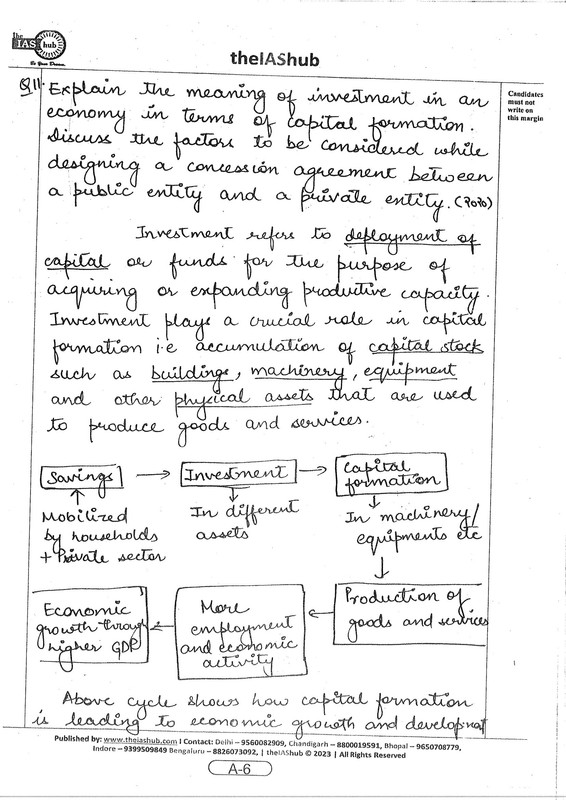 the
IAS hub
Be Your Dream
theIAShub
Candidates
must not
write on
this margin
Q11. Explain the meaning of investment in an
economy in terms of capital formation.
Discuss the factors to be considered while
designing a concession agreement between
a public entity and a private entity. (2020)
Investment refers to deployment of
capital or funds for the purpose of
acquiring or expanding productive capacity.
Investment plays a crucial role in capital
formation i.e accumulation of capital stock
such as buildings, machinery, equipment
and other physical assets that are used
to produce goods and services.
Savings → Investment → Capital
formation
Mobilized
by households
+ Private sector
In different
assets
In machinery/
equipments etc
Production of
goods and services
More
employment
and economic
activity
Economic
growth through
higher GDP
Above cycle shows how capital formation
is leading to economic growth and development
Published by: www.theiashub.com I Contact: Delhi – 9560082909, Chandigarh – 8800019591, Bhopal – 9650708779,
Indore – 9399509849 Bengaluru – 8826073092, | theIAShub © 2023 | All Rights Reserved
A-6